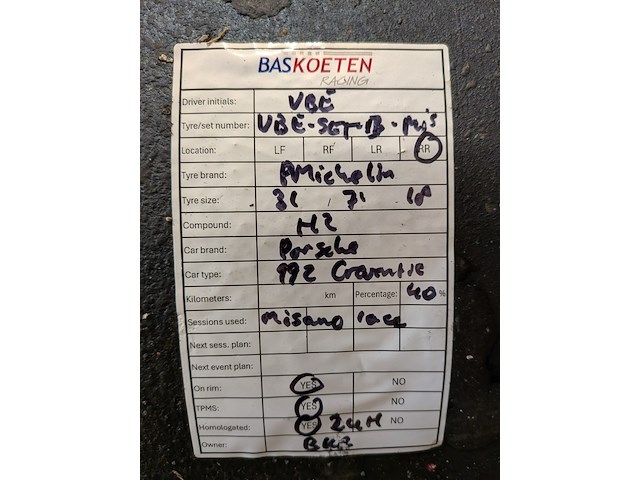 BASKOETEN
RACING
Driver initials: VBE
Tyre/set number: VBE-SET-B-
Location: LF RF LR RR
Tyre brand: Michelin
Tyre size: 31 / 71 18
Compound: H2
Car brand: Porsche
Car type: 992 Creventic
Kilometers: km Percentage: 40 %
Sessions used: Misano race
Next sess. plan:
Next event plan:
On rim: YES NO
TPMS: YES NO
Homologated: YES 24H NO
Owner: